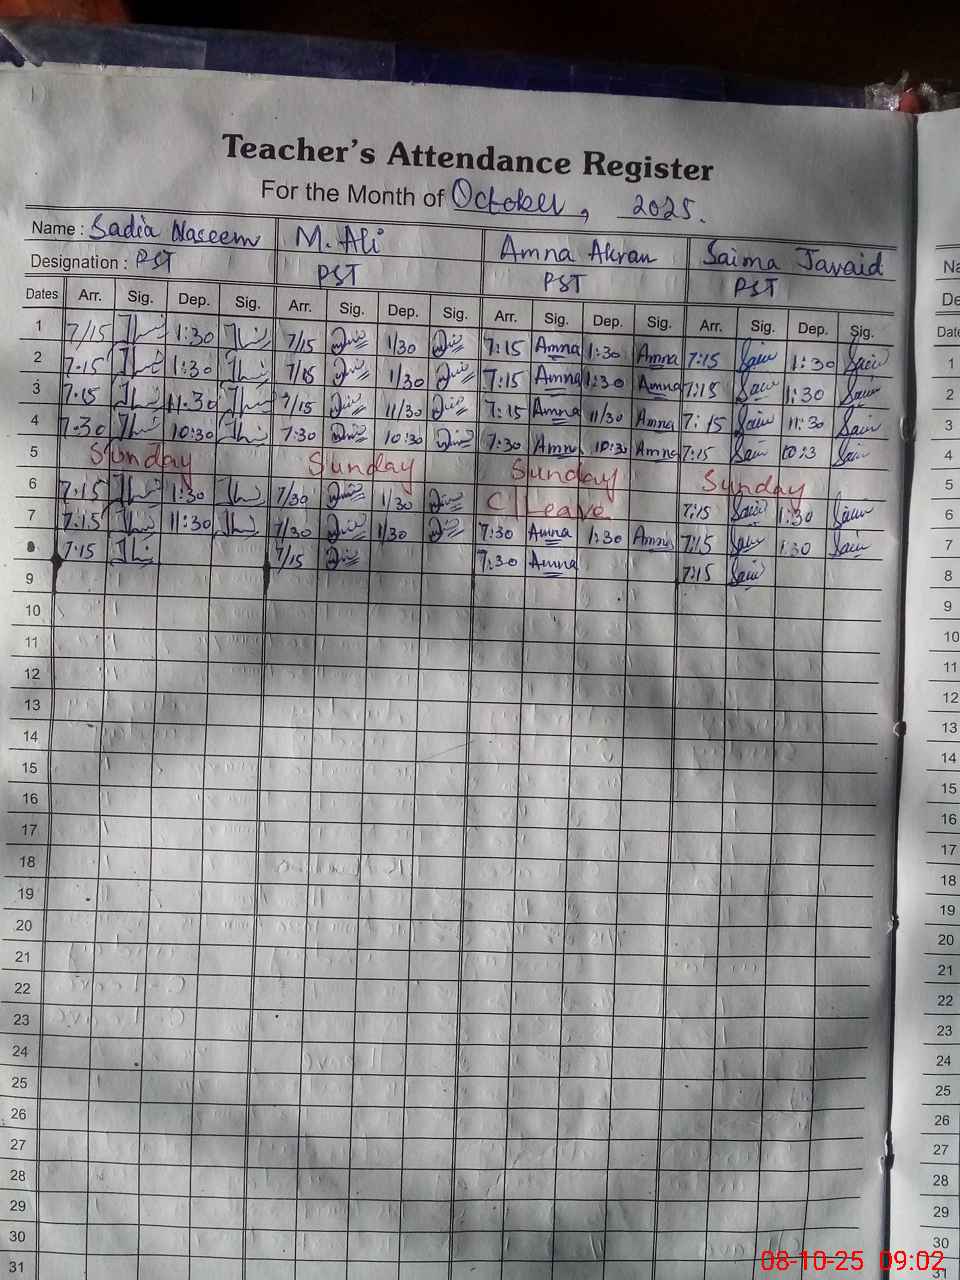 Teacher's Attendance Register
For the Month of October, 2025.
Name : Sadia Naseem M. Ali Amna Akram Saima Javaid
Designation : PST PST PST PST
Dates Arr. Sig. Dep. Sig. Arr. Sig. Dep. Sig. Arr. Sig. Dep. Sig. Arr. Sig. Dep. Sig.
1 7/15 1:30 7/15 1/30 7:15 Amna 1:30 Amna 7:15 1:30 1
2 7.15 1:30 7/15 1/30 7:15 Amna 1:30 Amna 7:15 1:30 2
3 7.15 11.30 7/15 11/30 7:15 Amna 11/30 Amna 7:15 11:30 3
4 7.30 10:30 7:30 10:30 7:30 Amna 10:30 Amna 7:15 10:3 4
5 Sunday Sunday Sunday Sunday 5
6 7.15 1:30 7/30 1/30 C/Leave 7:15 1:30 6
7 7:15 11:30 7/30 1/30 7:30 Amna 1:30 Amna 7:15 1:30 7
7:15 7/15 7:30 Amna 7:15 8
9 9
10 10
11 11
12 12
13 13
14 14
15 15
16 16
17 17
18 18
19 19
20 20
21 21
22 22
23 23
24 24
25 25
26 26
27 27
28 28
29 29
30 30
31 31
08-10-25 09:02